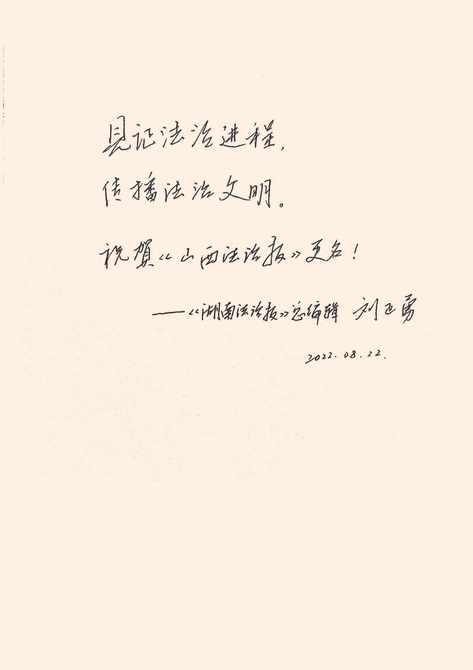 見记法治进程，
传播法治文明。
祝贺《山西法治报》更名！
——《湖南法治报》总编辑 刘正勇
2022.08.22.